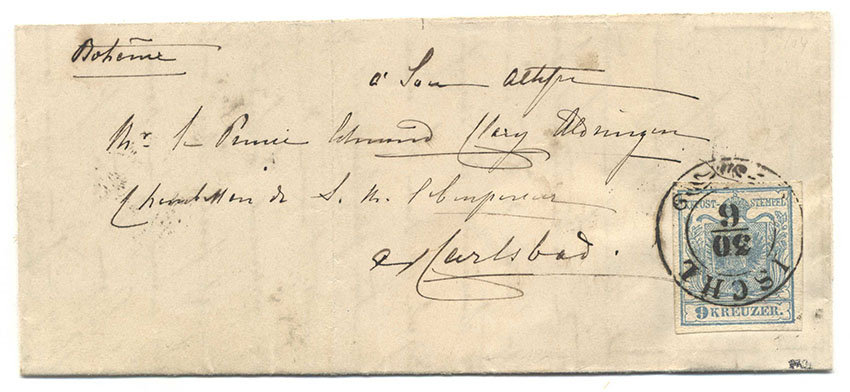 Bohême
à Son Altesse
Mr. le Prince Edmund Clary Aldringen
Chambellan de S. M. l'Empereur
à Carlsbad.
K.K.POST-STEMPEL
9 KREUZER.
ISCHL
30
6